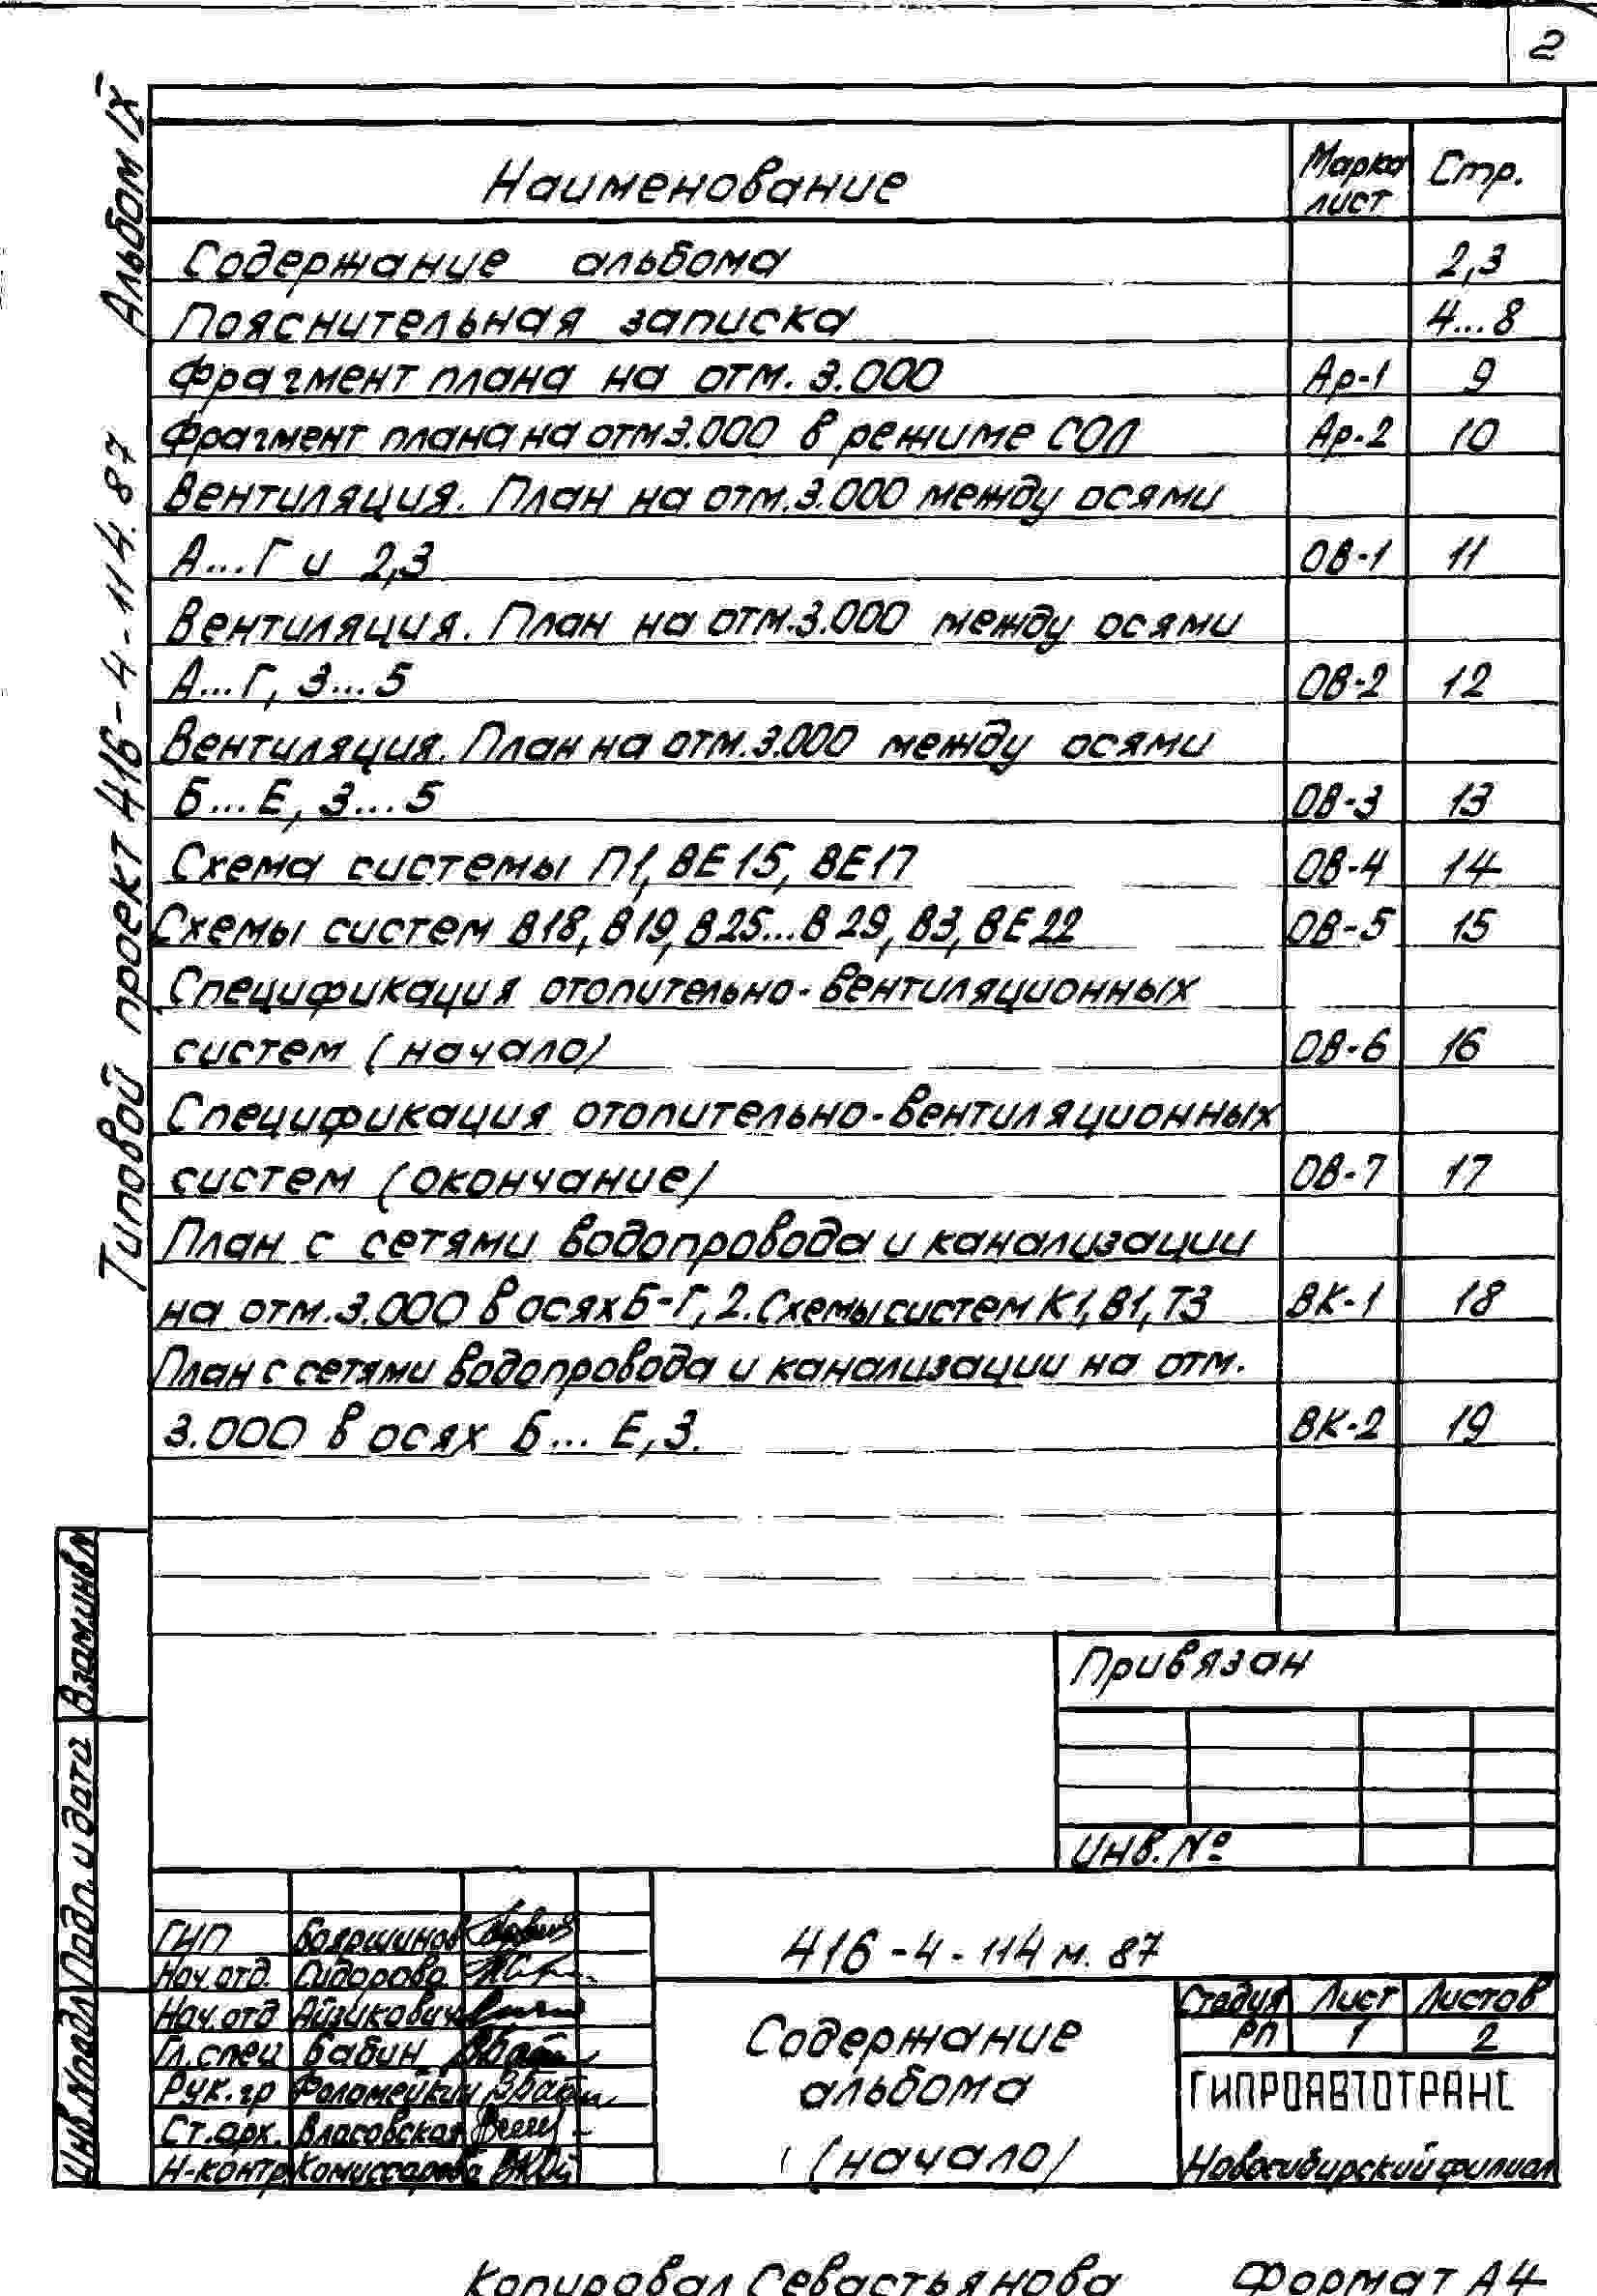 2
Альбом IX
Типовой проект 416-4-114.87
Наименование Марка лист Стр.
Содержание альбома 2,3
Пояснительная записка 4...8
Фрагмент плана на отм. 3.000 Ар-1 9
Фрагмент плана на отм 3.000 в режиме СОЛ Ар-2 10
Вентиляция. План на отм. 3.000 между осями
А...Г и 2,3 ОВ-1 11
Вентиляция. План на отм. 3.000 между осями
А...Г, 3...5 ОВ-2 12
Вентиляция. План на отм. 3.000 между осями
Б...Е, 3...5 ОВ-3 13
Схема системы П1, ВЕ15, ВЕ17 ОВ-4 14
Схемы систем В18, В19, В25...В29, В3, ВЕ22 ОВ-5 15
Спецификация отопительно-вентиляционных
систем (начало) ОВ-6 16
Спецификация отопительно-вентиляционных
систем (окончание) ОВ-7 17
План с сетями водопровода и канализации
на отм. 3.000 в осях Б-Г, 2. Схемы систем К1, В1, Т3 ВК-1 18
План с сетями водопровода и канализации на отм.
3.000 в осях Б... Е, 3. ВК-2 19
Привязан
Инв. №
Взам.инв.№
Подп. и дата
Инв.№подл
ГИП Бояршинов
Нач. отд. Сидорова
Нач. отд Айзикович
Гл. спец Бабин
Рук. гр Фоломейкин
Ст. арх. Власовская
Н-контр Комиссарова
416-4-114 м. 87
Содержание
альбома
(начало)
Стадия Лист Листов
РП 1 2
ГИПРОАВТОТРАНС
Новосибирский филиал
Копировал Севастьянова Формат А4